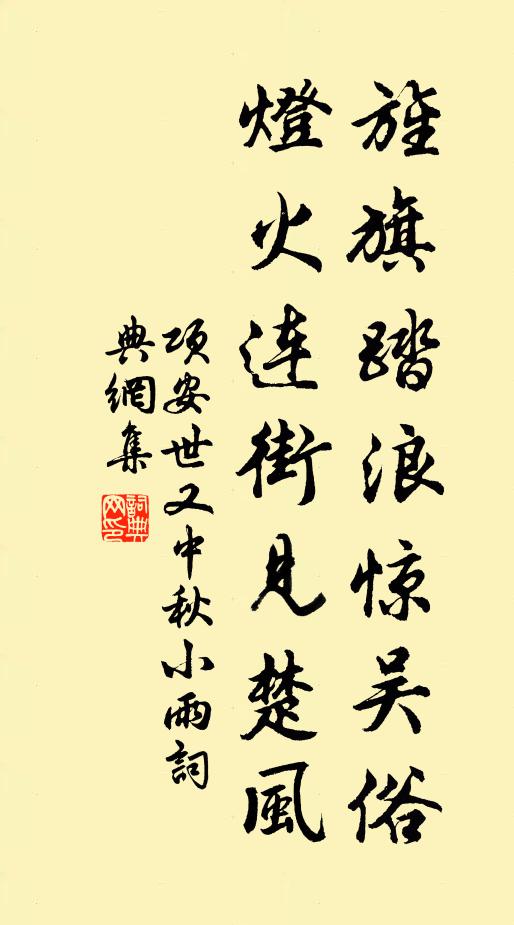 旌旗踏浪惊吴俗
燈火连街見楚風
项安世又中秋小雨詞
典網集
詞典
网印